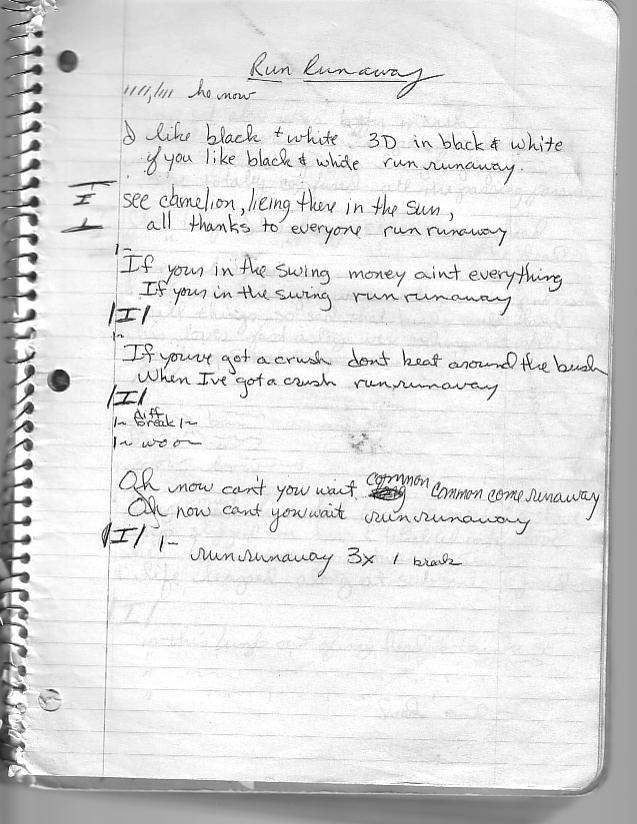 Run Runaway
he now
I like black + white 3D in black & white
if you like black & white run runaway.
I see camelion, lieing there in the sun,
all thanks to everyone run runaway
1~
If your in the swing money aint everything
If your in the swing run runaway
|I|
1~
If youve got a crush dont beat around the bush
When I've got a crush run runaway
|I|
1~ diff break 1~
1~ woo
Oh now can't you wait common common come runaway
Oh now cant you wait run runaway
|I| 1~
run runaway 3x 1 break